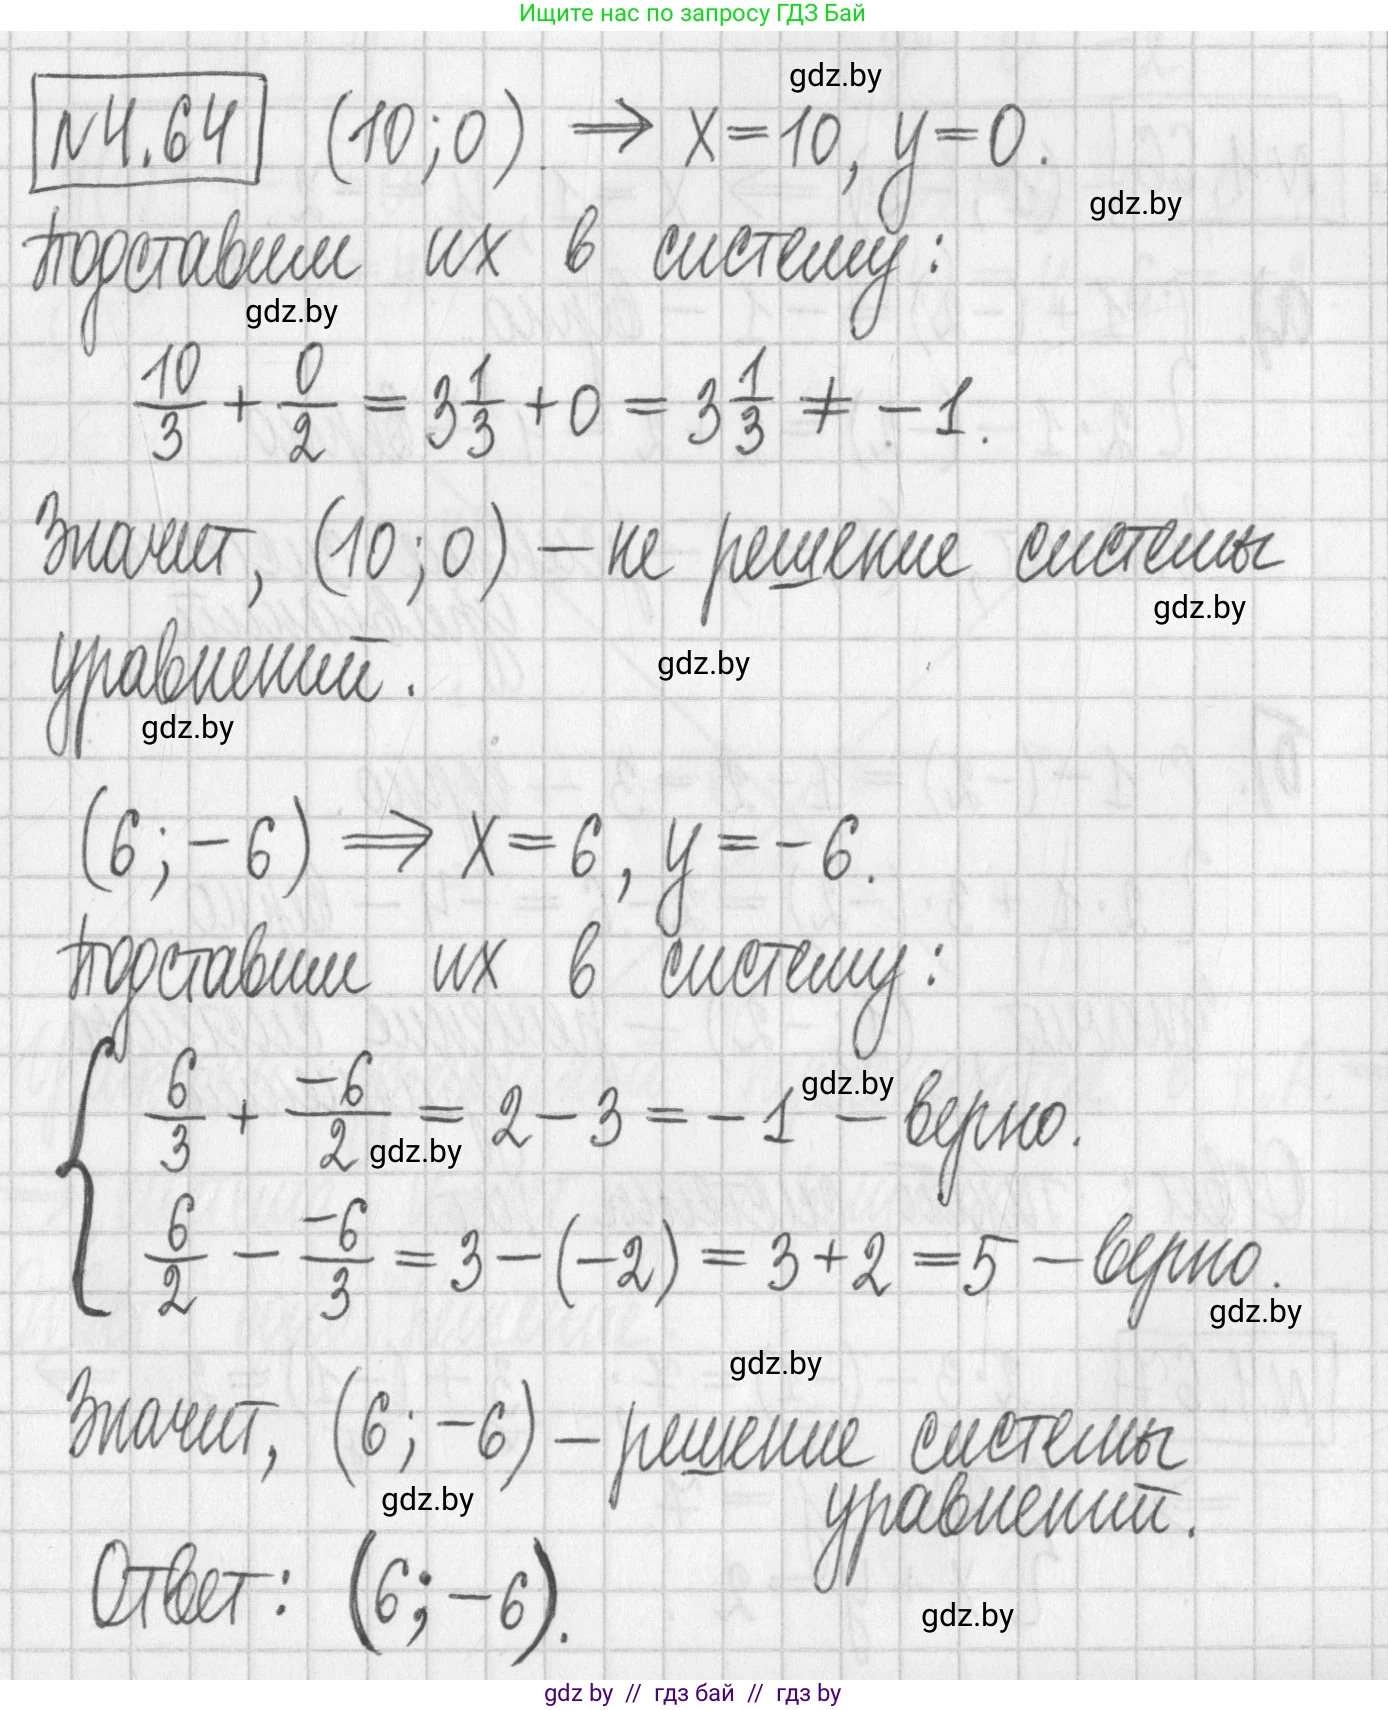 Ищите нас по запросу ГДЗ Бай
gdz.by
№4.64 (10;0). ⇒ x=10, y=0.
gdz.by
Подставим их в систему:
gdz.by
10/3 + 0/2 = 3 1/3 + 0 = 3 1/3 ≠ -1.
Значит, (10;0) – не решение системы
gdz.by
уравнений.
gdz.by
gdz.by
(6;-6) ⇒ x=6, y=-6.
Подставим их в систему:
gdz.by
{ 6/3 + -6/2 = 2-3 = -1 – верно.
gdz.by
6/2 - -6/3 = 3-(-2) = 3+2 = 5 – верно.
gdz.by
gdz.by
Значит, (6;-6) – решение системы
gdz.by
уравнений.
Ответ: (6;-6).
gdz.by
gdz by // гдз бай // гдз by